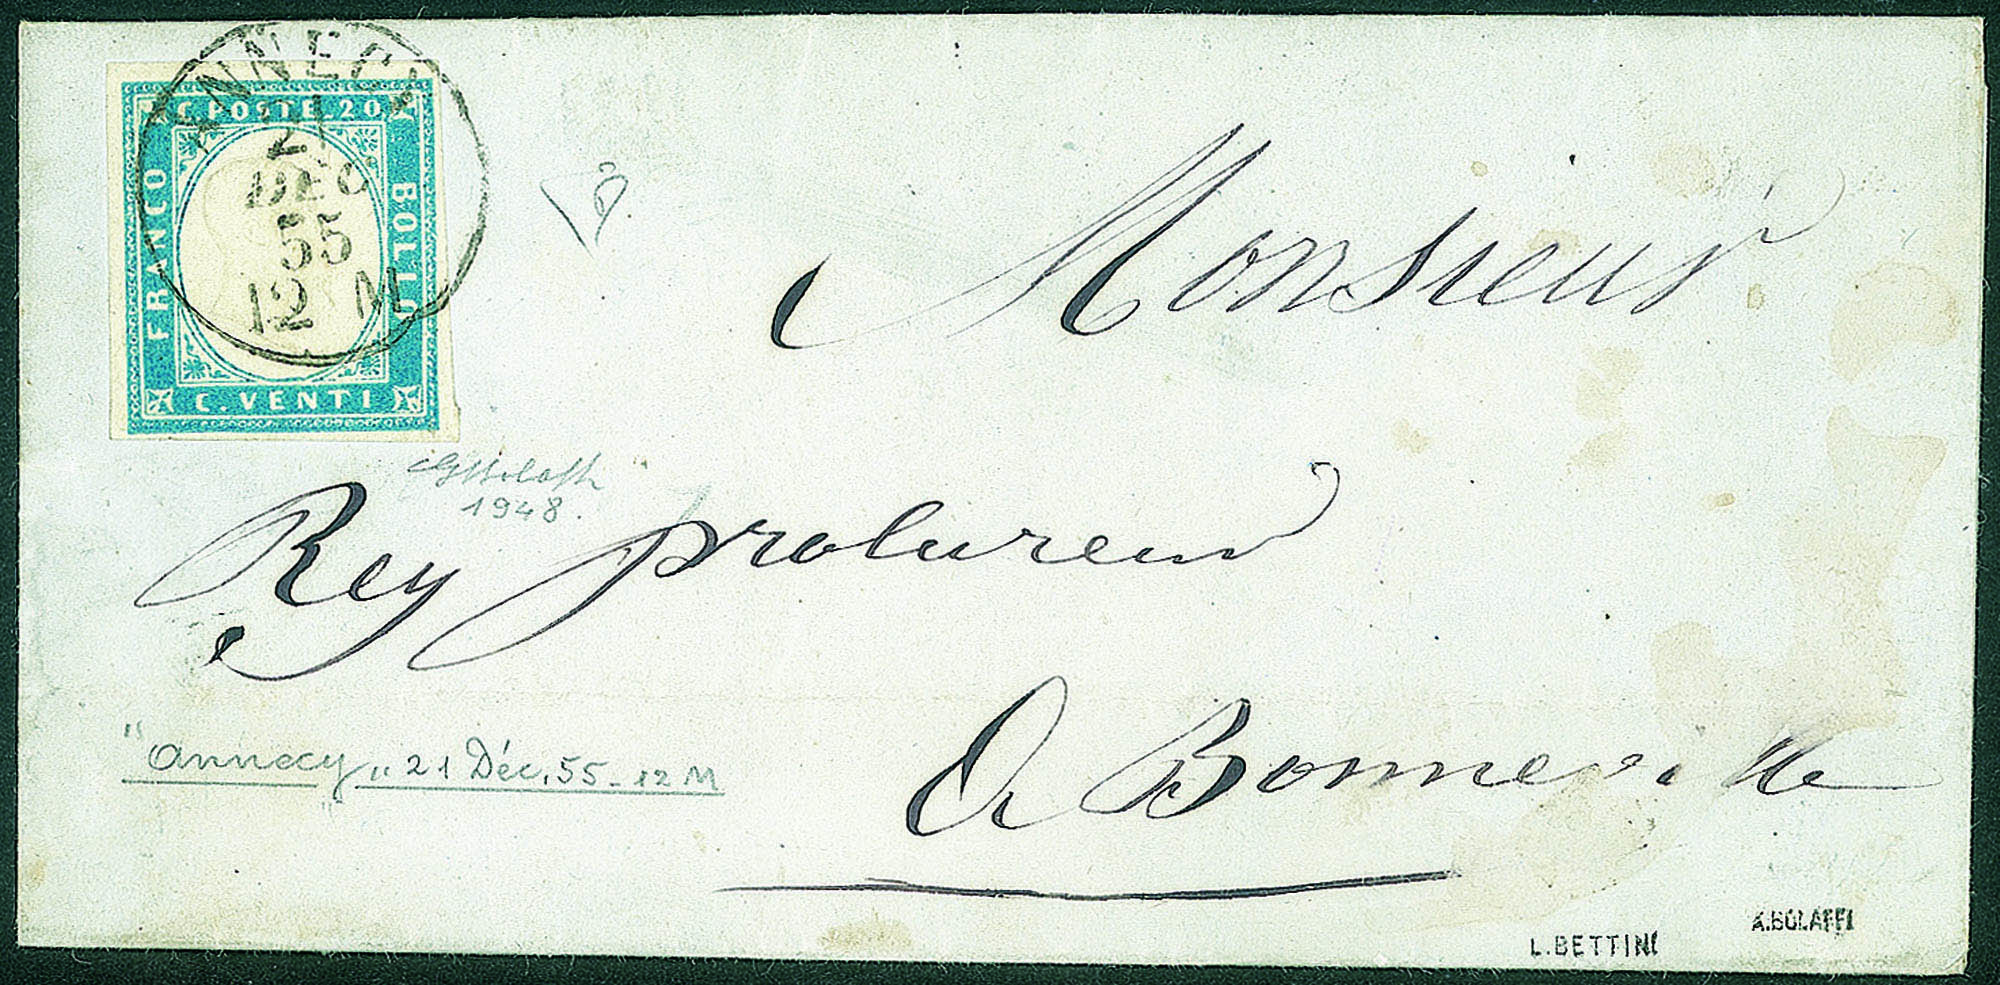 ANNECY
21
DEC
55
12 M
C. POSTE. 20
FRANCO
BOLLO
C. VENTI
Monsieur
1948.
Rey procureur
"Annecy" 21 Déc. 55 - 12 M
A Bonneville
L. BETTINI
A. BOLAFFI